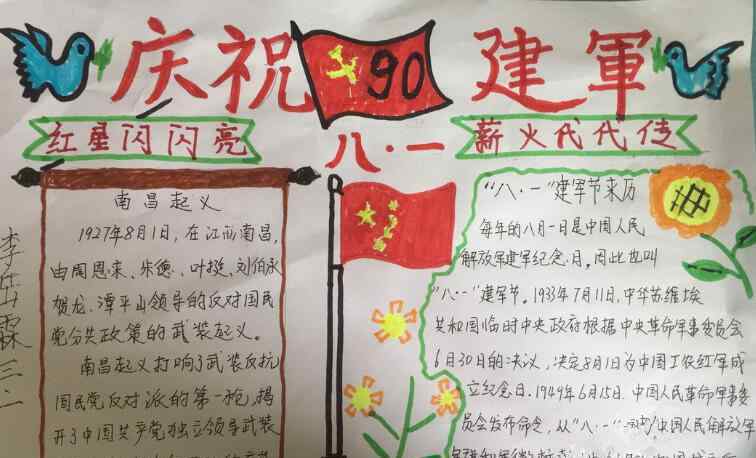 庆祝 90 建軍
红星闪闪亮
八·一
薪火代代传
南昌起义
1927年8月1日,在江西南昌,
由周恩来、朱德、叶挺、刘伯承
贺龙、谭平山领导的反对国民
党分共政策的武装起义。
南昌起义打响了武装反抗
国民党反对派的第一抢,揭
开了中国共产党独立领导武装
"八·一"建军节来历
每年的八月一日是中国人民
解放军建军纪念日。因此也叫
"八·一"建军节。1933年7月11日,中华苏维埃
共和国临时中央政府根据中央革命军事委员会
6月30日的决议,决定8月1日为中国工农红军成
立纪念日。1949年6月15日,中国人民革命军事委
员会发布命令,从"八·一" 中国人民解放军
李 霖三二